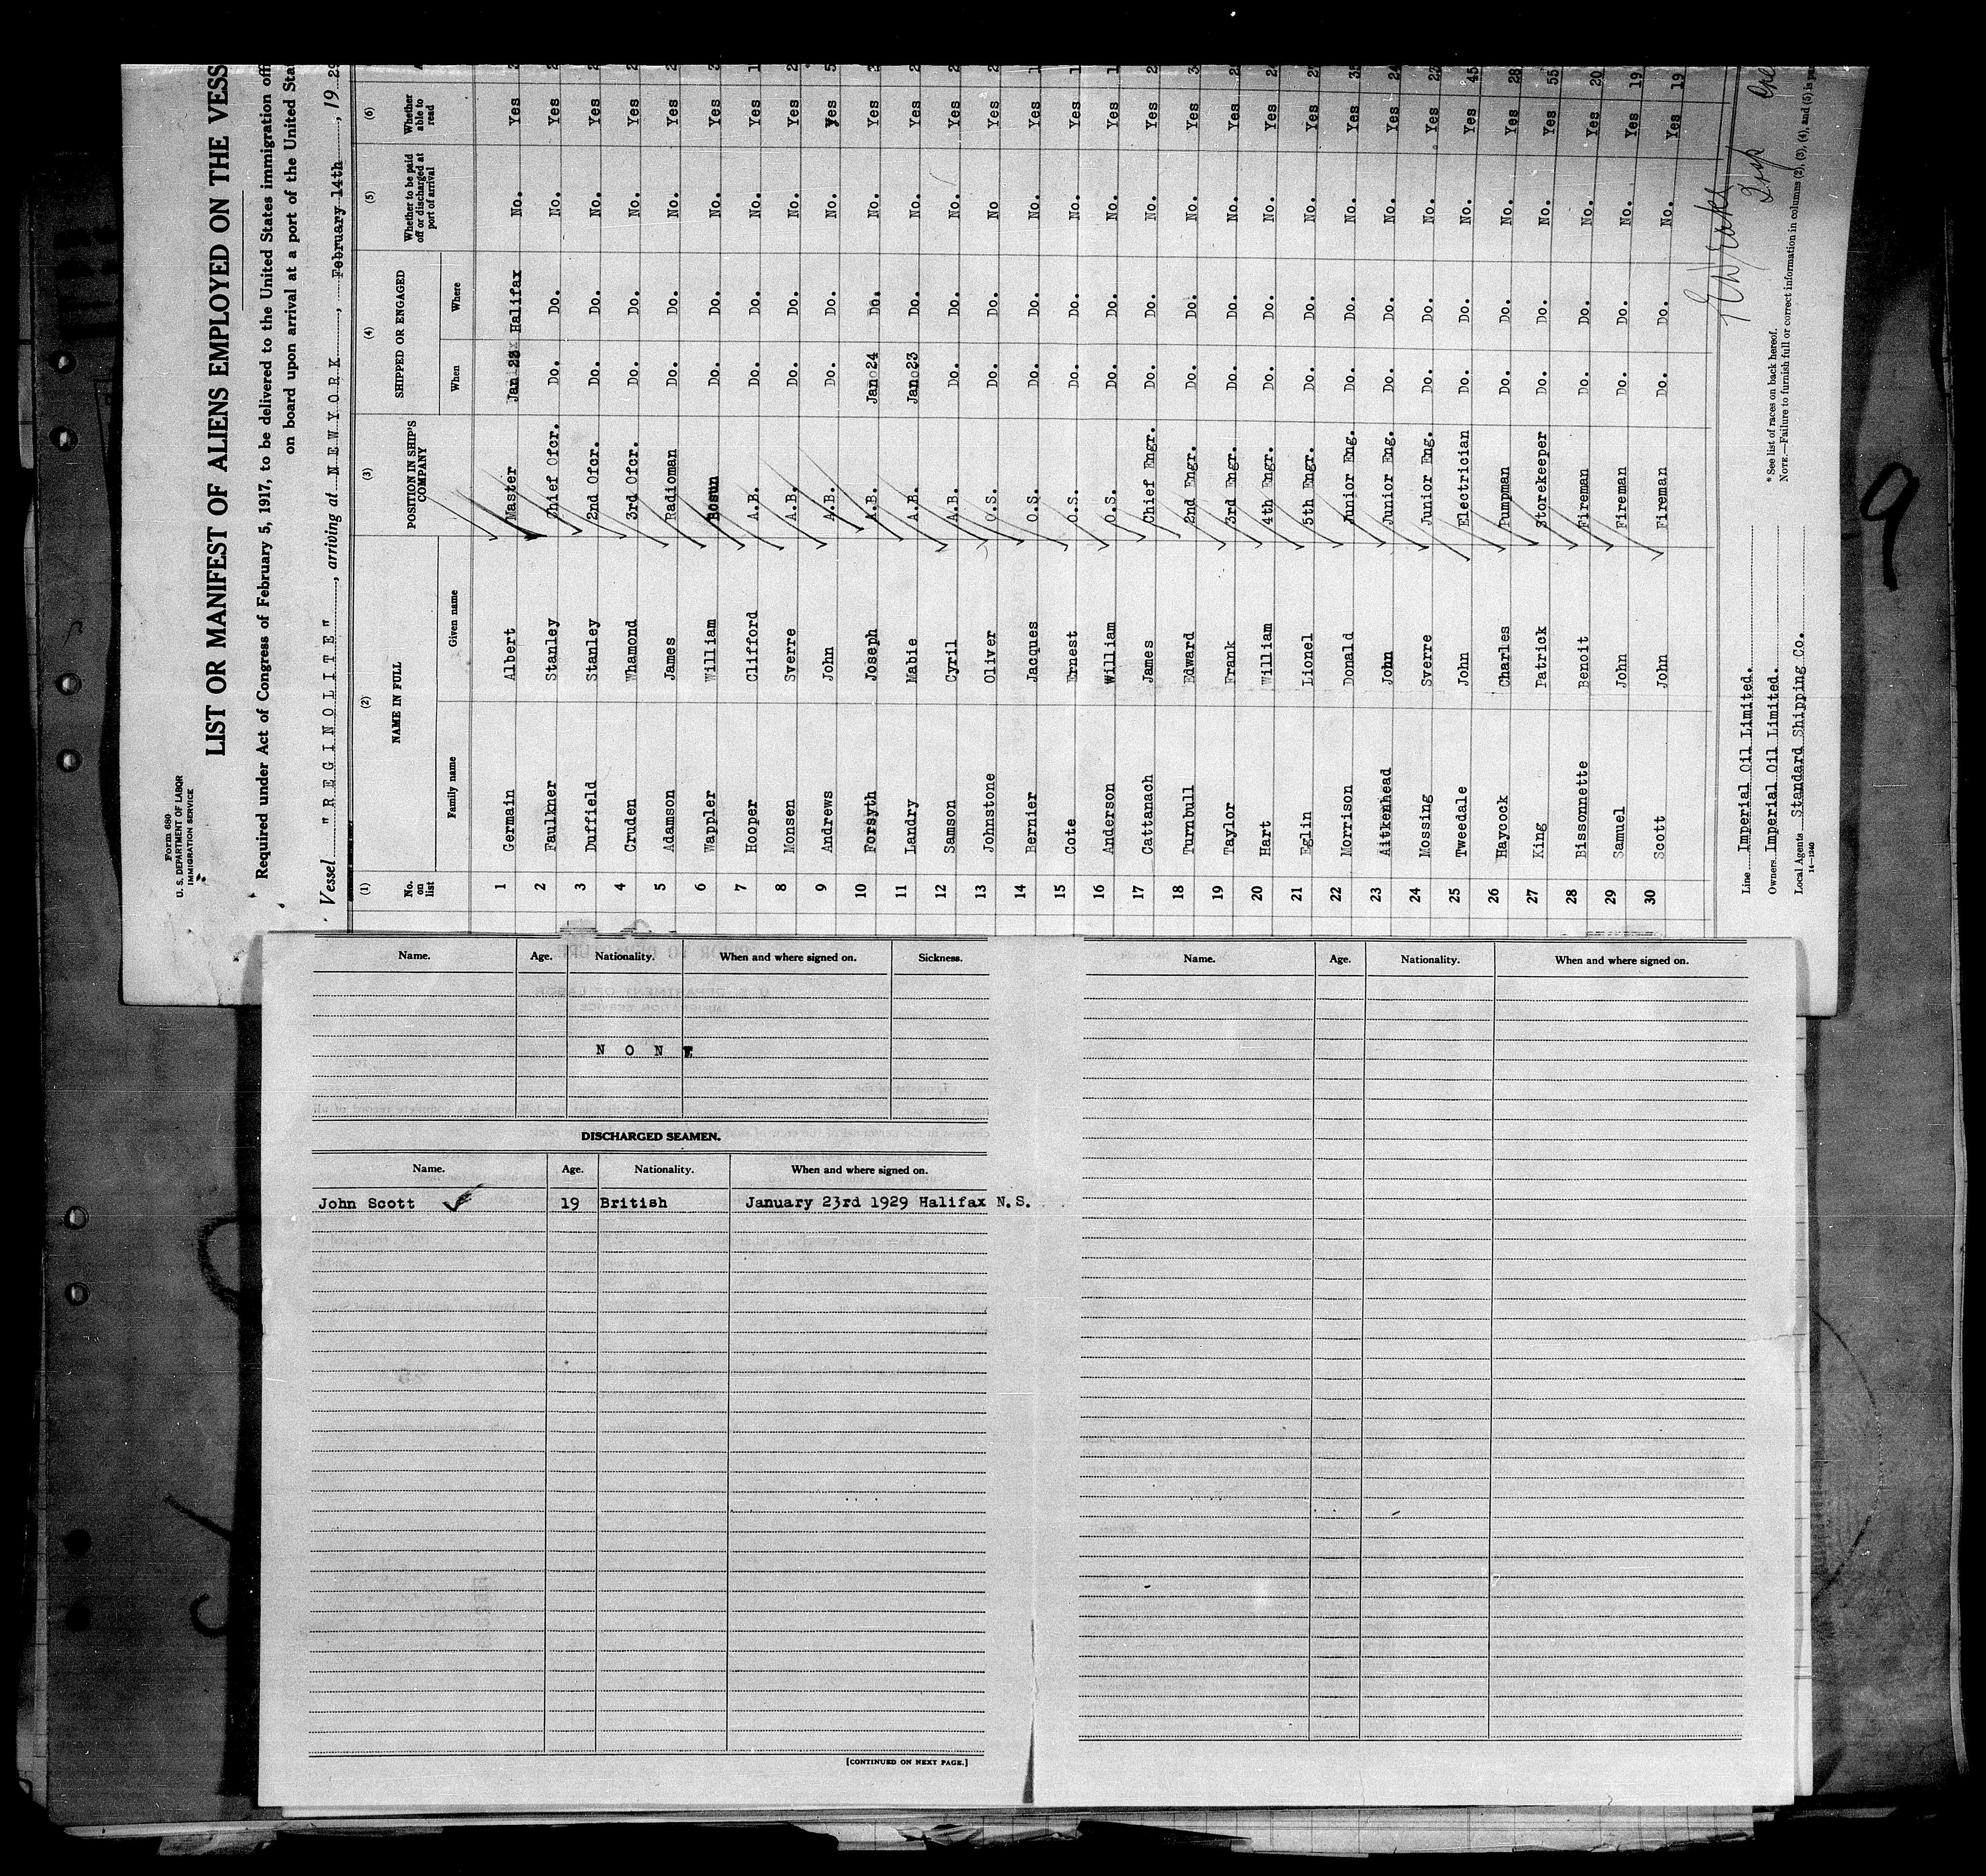 Form 680
U. S. DEPARTMENT OF LABOR
IMMIGRATION SERVICE
LIST OR MANIFEST OF ALIENS EMPLOYED ON THE VESS
Required under Act of Congress of February 5, 1917, to be delivered to the United States immigration offi
on board upon arrival at a port of the United Sta
Vessel "REGINOLITE", arriving at NEWYORK, February 14th, 19 29
(1) (2) (3) (4) (5) (6)
No. on list NAME IN FULL POSITION IN SHIP'S COMPANY SHIPPED OR ENGAGED Whether to be paid off or discharged at port of arrival Whether able to read
Family name Given name When Where
1 Germain Albert Master Jan 23 Halifax No. Yes
2 Faulkner Stanley Chief Ofcr. Do. Do. No. Yes
3 Duffield Stanley 2nd Ofcr. Do. Do. No. Yes
4 Cruden Whamond 3rd Ofcr. Do. Do. No. Yes
5 Adamson James Radioman Do. Do. No. Yes
6 Wappler William Bosun Do. Do. No. Yes
7 Hooper Clifford A.B. Do. Do. No. Yes
8 Monsen Sverre A.B. Do. Do. No. Yes
9 Andrews John A.B. Do. Do. No. Yes
10 Forsyth Joseph A.B. Jan 24 Do. No. Yes
11 Landry Mabie A.B. Jan 23 Do. No. Yes
12 Samson Cyril A.B. Do. Do. No. Yes
13 Johnstone Oliver O.S. Do. Do. No Yes
14 Bernier Jacques O.S. Do. Do. No. Yes
15 Cote Ernest O.S. Do. Do. No. Yes
16 Anderson William O.S. Do. Do. No. Yes
17 Cattanach James Chief Engr. Do. Do. No. Yes
18 Turnbull Edward 2nd Engr. Do. Do. No. Yes
19 Taylor Frank 3rd Engr. Do. Do. No. Yes
20 Hart William 4th Engr. Do. Do. No. Yes
21 Eglin Lionel 5th Engr. Do. Do. No. Yes
22 Morrison Donald Junior Eng. Do. Do. No. Yes 35
23 Aitkenhead John Junior Eng. Do. Do. No. Yes 24
24 Mossing Sverre Junior Eng. Do. Do. No. Yes
25 Tweedale John Electrician Do. Do. No. Yes 45
26 Haycock Charles Pumpman Do. Do. No. Yes 28
27 King Patrick Storekeeper Do. Do. No. Yes 55
28 Bissonnette Benoit Fireman Do. Do. No. Yes 20
29 Samuel John Fireman Do. Do. No. Yes 19
30 Scott John Fireman Do. Do. No. Yes 19
Line Imperial Oil Limited.
Owners Imperial Oil Limited.
Local Agents Standard Shipping Co.
14—1240
*See list of races on back hereof.
NOTE.—Failure to furnish full or correct information in columns (2), (3), (4), and (5) is pu
9
Name. Age. Nationality. When and where signed on. Sickness.
NONE
DISCHARGED SEAMEN.
Name. Age. Nationality. When and where signed on.
John Scott 19 British January 23rd 1929 Halifax N.S.
[CONTINUED ON NEXT PAGE.]
Name. Age. Nationality. When and where signed on.